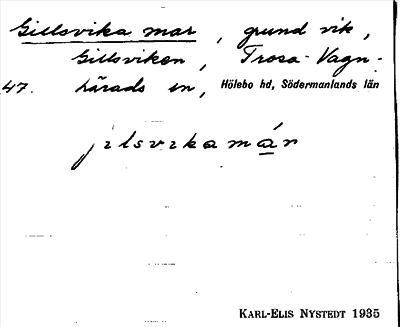 Gillsvika mar, grund vik,
Gillsviken, Trosa-Vagn-
47. härads sn, Hölebo hd, Södermanlands län
jilsvikamár
KARL-ELIS NYSTEDT 1935